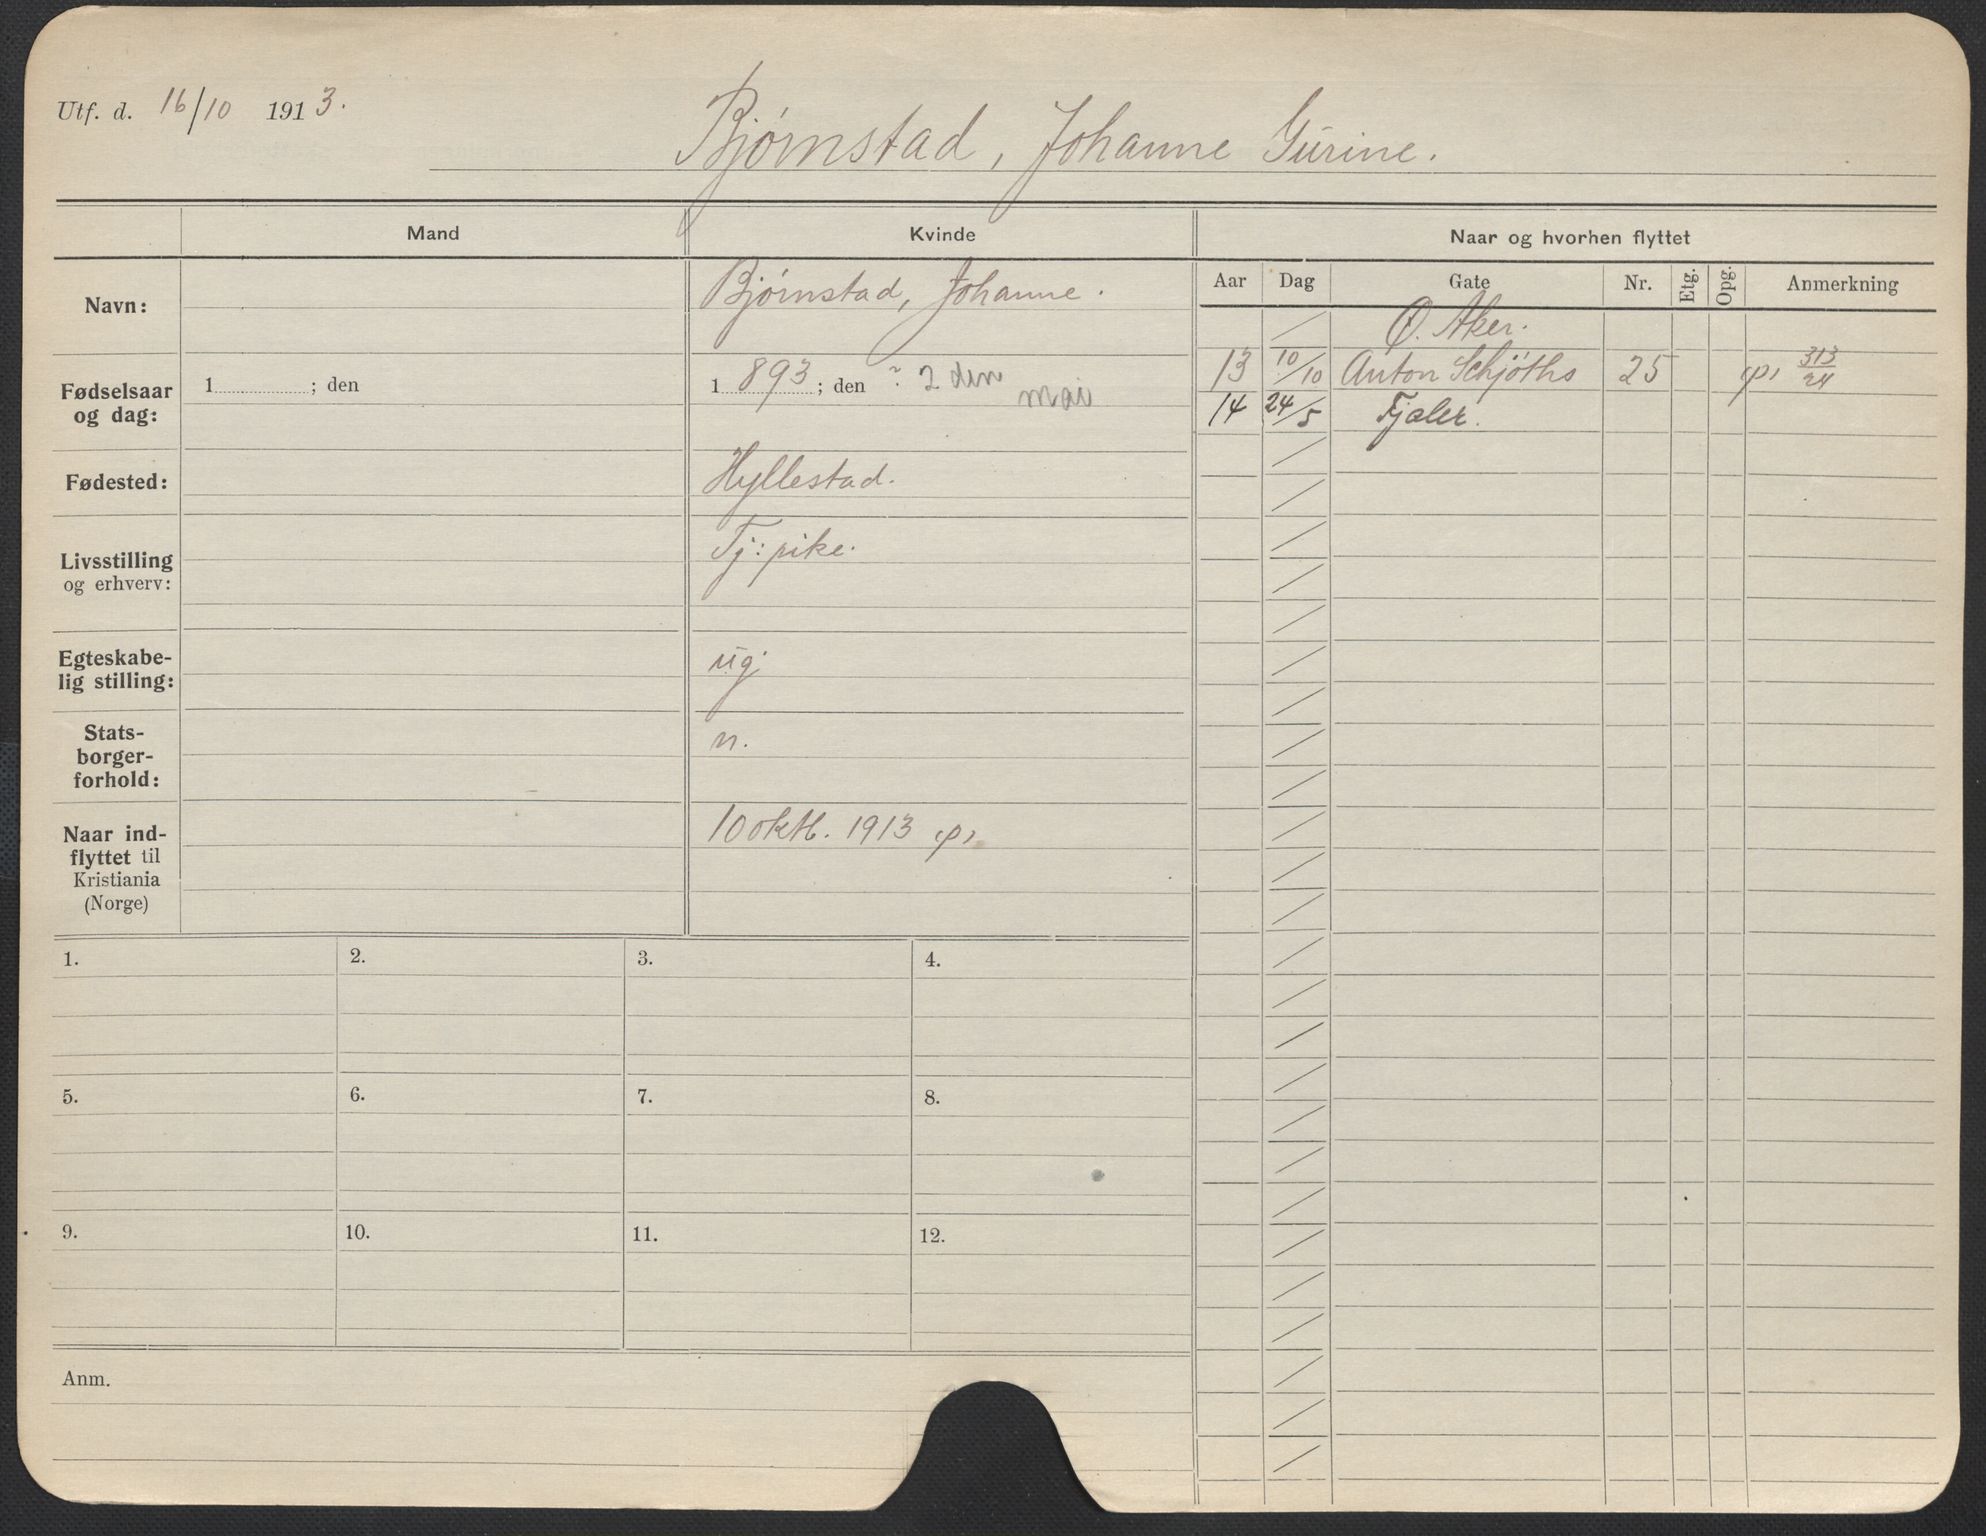 Utf. d. 16/10 1913.
Bjørnstad, Johanne Gurine.
Mand
Kvinde
Naar og hvorhen flyttet
Aar Dag Gate Nr. Etg. Opg. Anmerkning
Navn:
Bjørnstad, Johanne.
Ø. Aker.
13 10/10 Anton Schjøths 25 313/24
14 24/5 Fjaler.
Fødselsaar
og dag:
1 ; den
1893; den 2 den
mai
Fødested:
Hyllestad.
Livsstilling
og erhverv:
Tj: pike.
Egteskabe-
lig stilling:
ug.
Stats-
borger-
forhold:
n.
Naar ind-
flyttet til
Kristiania
(Norge)
10 oktb. 1913
1. 2. 3. 4.
5. 6. 7. 8.
9. 10. 11. 12.
Anm.